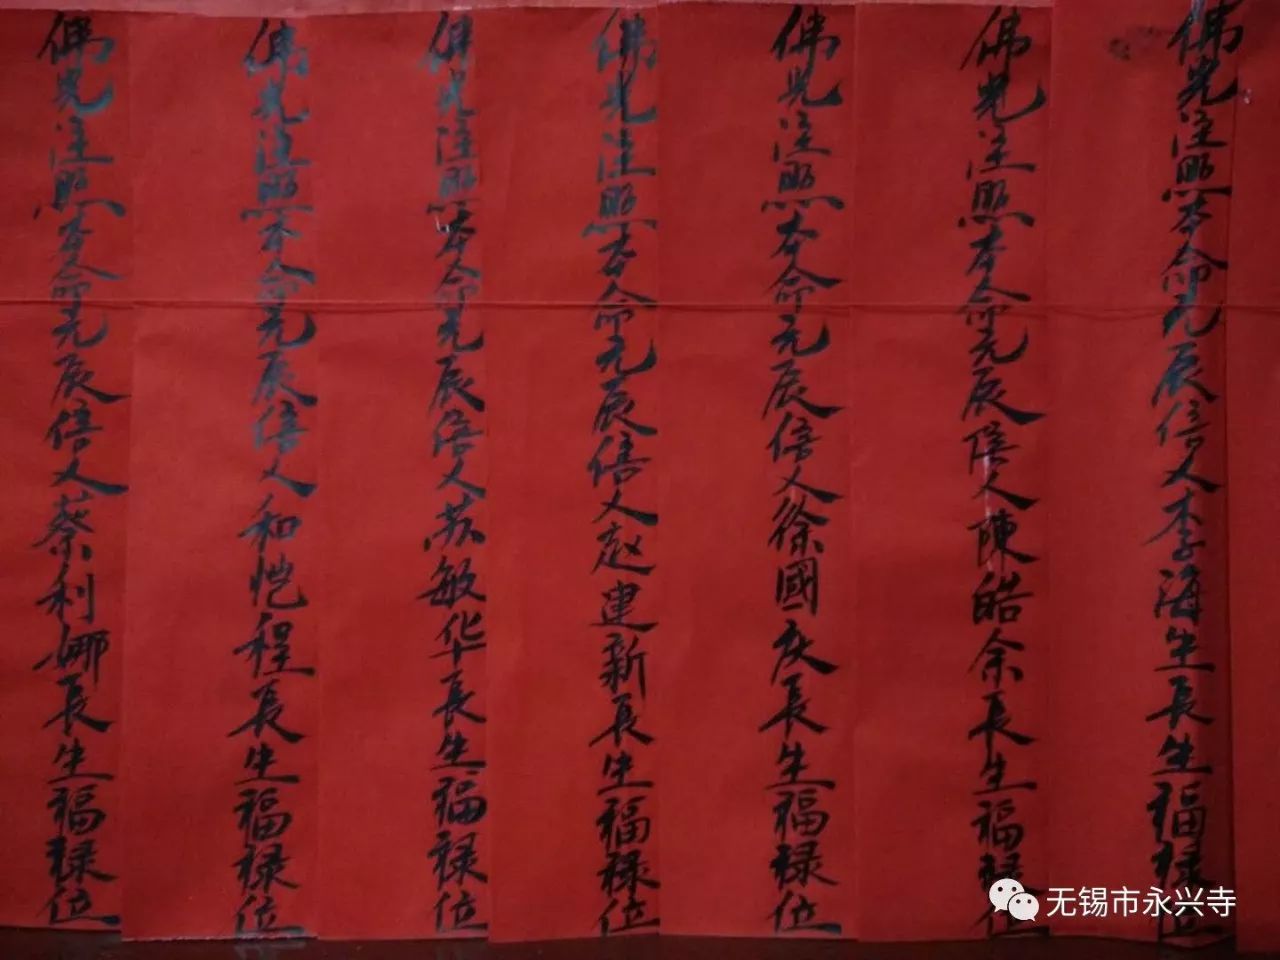 佛光注照本命元辰信人李海生長生福禄位
佛光注照本命元辰信人陳皓余長生福禄位
佛光注照本命元辰信人徐國庆長生福禄位
佛光注照本命元辰信人赵建新長生福禄位
佛光注照本命元辰信人苏敏华長生福禄位
佛光注照本命元辰信人和恺程長生福禄位
佛光注照本命元辰信人蔡利娜長生福禄位
无锡市永兴寺